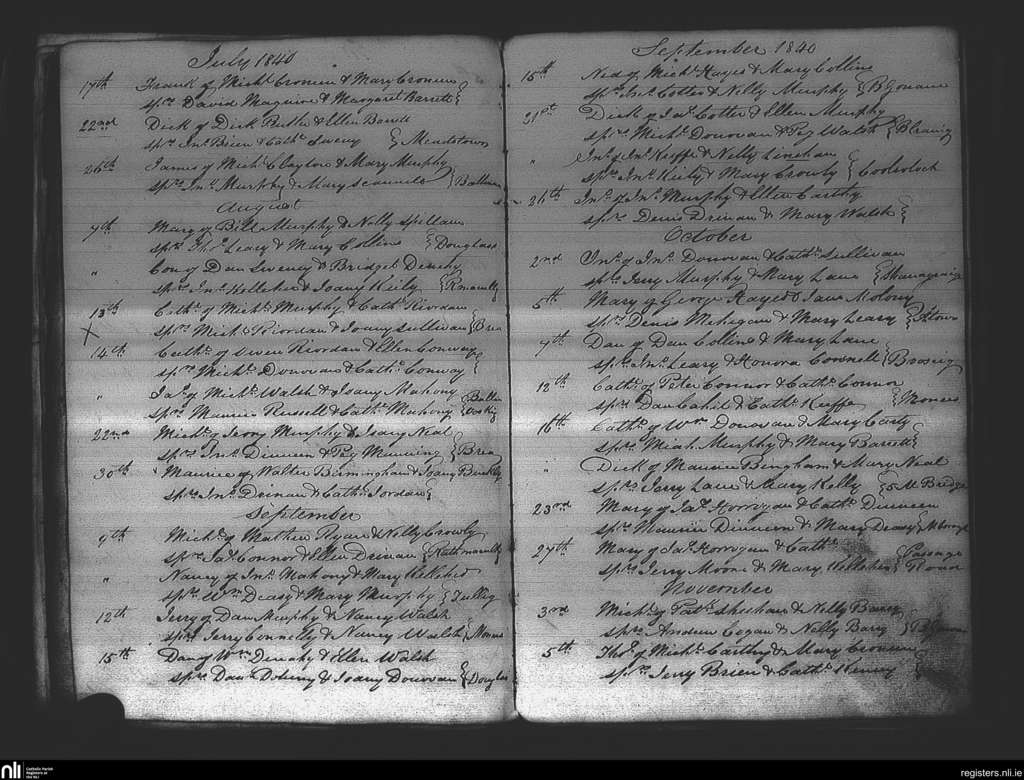 July 1840
17th Frank of Michl. Cronin & Mary Cronin
sprs David Maguire & Margaret Barrett
22nd Dick of Dick Butler & Ellen
sprs Jno. Brien & Cathe. Meadstown
26th James of Michl. Clayton & Mary Murphy
sprs Jno. Murphy & Mary Scannell
August
9th Mary of Bill Murphy & Nelly Spillane
sprs Thos. Leary & Mary Collins Douglass
" Con of Dan Sweny & Bridget Denehy
sprs Jno. Kelleher & Joany Keily
13th Cathe. of Michl. Murphy & Cathe. Riordan
X sprs Michl. Riordan & Joany Sullivan Brea
14th Cathe. of Owen Riordan & Ellen Conway
sprs Michl. Donovan & Cathe. Conway
" Jas. of Michl. Walsh & Joany Mahony
sprs Maurice Russell & Cathe. Mahony
22nd Michl. of Jerry Murphy & Joany Neal
sprs Jno. Dinneen & Peg Brea
30th Maurice of Walter Birmingham & Joany Buckley
sprs Jno. Drinan & Cathe. Jordan
September
9th Michl. of Mathew Ryan & Nelly Crowly
sprs Jas. Connor & Ellen Drinan
" Nancy of Jno. Mahony & Mary Kelleher
sprs Wm. Deasy & Mary Murphy Tullig
12th Jerry of Dan Murphy & Nancy Walsh
sprs Jerry Connelly & Nancy Walsh
15th Dan of Wm. Denahy & Ellen Walsh
sprs Danl. Doheny & Joany Donovan Douglas
September 1840
15th Ned of Michl. Hayes & Mary Collins
sprs Jno. Cotter & Nelly Murphy
21st Dick of Jas. Cotter & Ellen Murphy
sprs Michl. Donovan & Peg Walsh
" Jno. of Jno. Keeffe & Nelly Linehan
sprs Jno. Kiely & Mary Crowly
26th Jno. of Jno. Murphy & Ellen Carthy
sprs Denis Drinan & Mary Walsh
October
2nd Jno. of Jno. Donovan & Cathe. Sullivan
sprs Jerry Murphy & Mary Lane
5th Mary of George Hayes & Jane Molony
sprs Denis Mehagan & Mary Leary
9th Dan of Dan Collins & Mary Lane
sprs Jno. Leary & Honora Connell
12th Cathe. of Peter Connor & Cathe. Connor
sprs Dan Cahil & Cathe. Keeffe
16th Cathe. of Wm. Donovan & Mary Carty
sprs Mich Murphy & Mary Barrett
" Dick of Maurice Bingham & Mary Neal
sprs Jerry Lane & Mary Kelly 5 M Bridge
23rd Mary of Jas. Horrogan & Cathe. Dinneen
sprs Maurice Dinneen & Mary Deasy
27th Mary of Jas. Horrogan & Cathe.
sprs Jerry Moore & Mary Kelleher Passage
November
3rd Michl. of Patk. Sheehan & Nelly Barry
sprs Andrew Cogan & Nelly Barry
5th Thos. of Michl. Carthy & Mary Cronin
sprs Jerry Brien & Cathe.
nli
Catholic Parish
Registers at
the NLI
registers.nli.ie